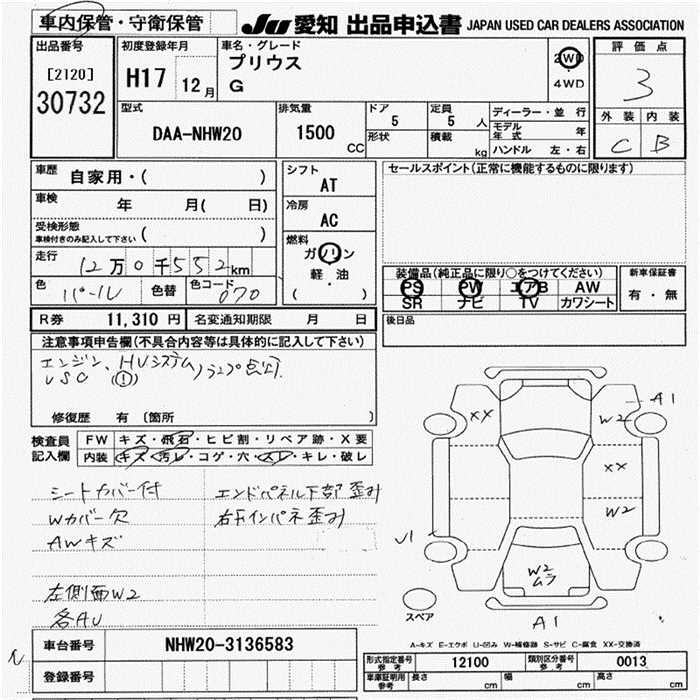 車内保管・守衛保管
JU 愛知 出品申込書 JAPAN USED CAR DEALERS ASSOCIATION
出品番号
[2120]
30732
初度登録年月
H17 12月
車名・グレード
プリウス
G
2WD
4WD
評価点
3
外装 内装
C B
型式
DAA-NHW20
排気量
1500 CC
ドア 5
形状
定員 5 人
積載 kg
ディーラー・並行
モデル年式 年
ハンドル 左・右
車歴
自家用・( )
車検 年 月( 日)
受検形態
車検付きのみ記入して下さい ( )
走行 12万0千552km
色 パール 色替 色コード 070
シフト
AT
冷房
AC
燃料
ガソリン
軽・油
( )
セールスポイント(正常に機能するものに限ります)
装備品(純正品に限り○をつけてください)
PS PW エアB AW
SR ナビ TV カワシート
新車保証書
有・無
後日品
R券 11,310 円 名変通知期限 月 日
注意事項申告欄(不具合内容等は具体的に記入して下さい)
エンジン、HVシステム、ランプ点灯
VSC (!)
修復歴 有 〔箇所 〕
検査員記入欄
FW キズ・飛石・ヒビ割・リペア跡・X要
内装 キズ・汚レ・コゲ・穴・スレ・キレ・破レ
シートカバー付 エンドパネル下部歪み
Wカバー欠 右下インパネ歪み
AWキズ
左側面W2
各AU
XX
A1
W2
XX
W2
U1
W2
ムラ
A1
スペア
A-キズ E-エクボ U-凹み W-補修跡 S-サビ C-腐食 XX-交換済
車台番号 NHW20-3136583
登録番号
形式指定番号 参考 12100 類別区分番号 参考 0013
車庫証明用 参考 長さ cm 幅 cm 高さ cm